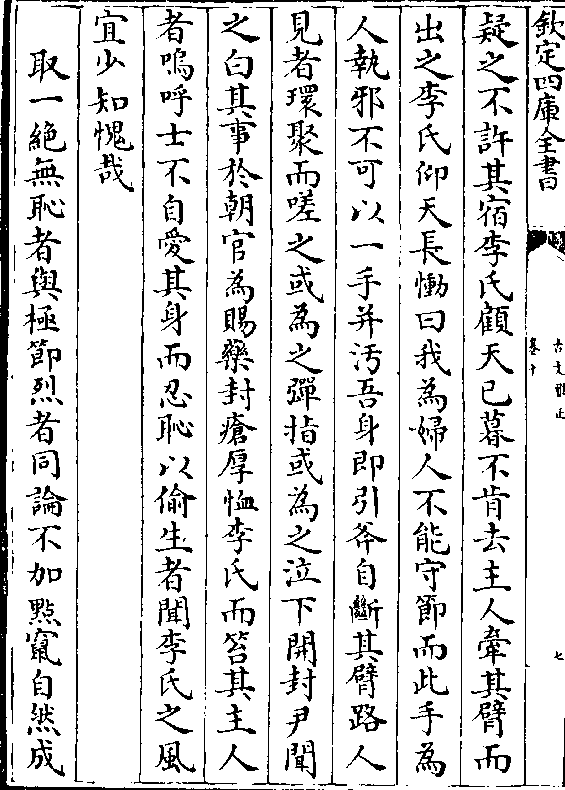 欽定四庫全書
古文雅正
卷十
七
疑之不許其宿李氏顧天已暮不肯去主人牽其臂而
出之李氏仰天長慟曰我為婦人不能守節而此手為
人執邪不可以一手并汚吾身即引斧自斷其臂路人
見者環聚而嗟之或為之彈指或為之泣下開封尹聞
之白其事於朝官為賜藥封瘡厚恤李氏而笞其主人
者嗚呼士不自愛其身而忍恥以偷生者聞李氏之風
宜少知愧哉
取一絶無恥者與極節烈者同論不加㸃竄自然成